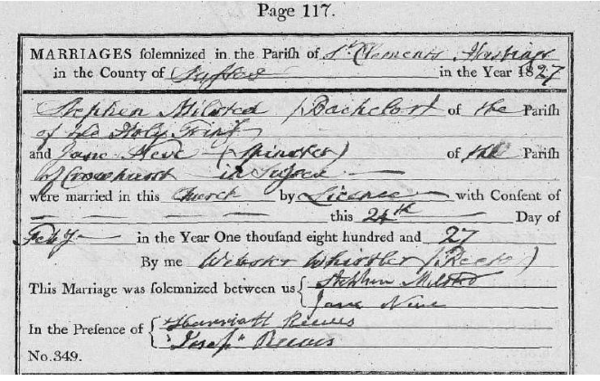 Page 117.
MARRIAGES solemnized in the Parish of St Clements Hastings
in the County of Sussex in the Year 1827
Stephen Milsted (Bachelor) of the Parish
of Holy
and Jane Neve (Spinster) of the Parish
of Crowhurst in Sussex
were married in this Church by Licence with Consent of
this 24th Day of
Feby in the Year One thousand eight hundred and 27
By me Webster Whistler (Rector)
This Marriage was solemnized between us { Stephen Milsted
Jane Neve
In the Presence of { Harriott Reeves
Josep Reeves
No. 349.